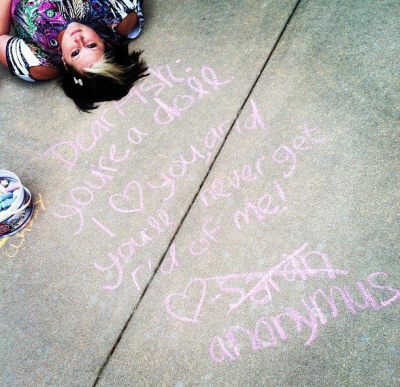 Dear Fish:
you're a doll
I ♡ you, and
you'll never get
rid of me!
♡ - Sarah
anonymus